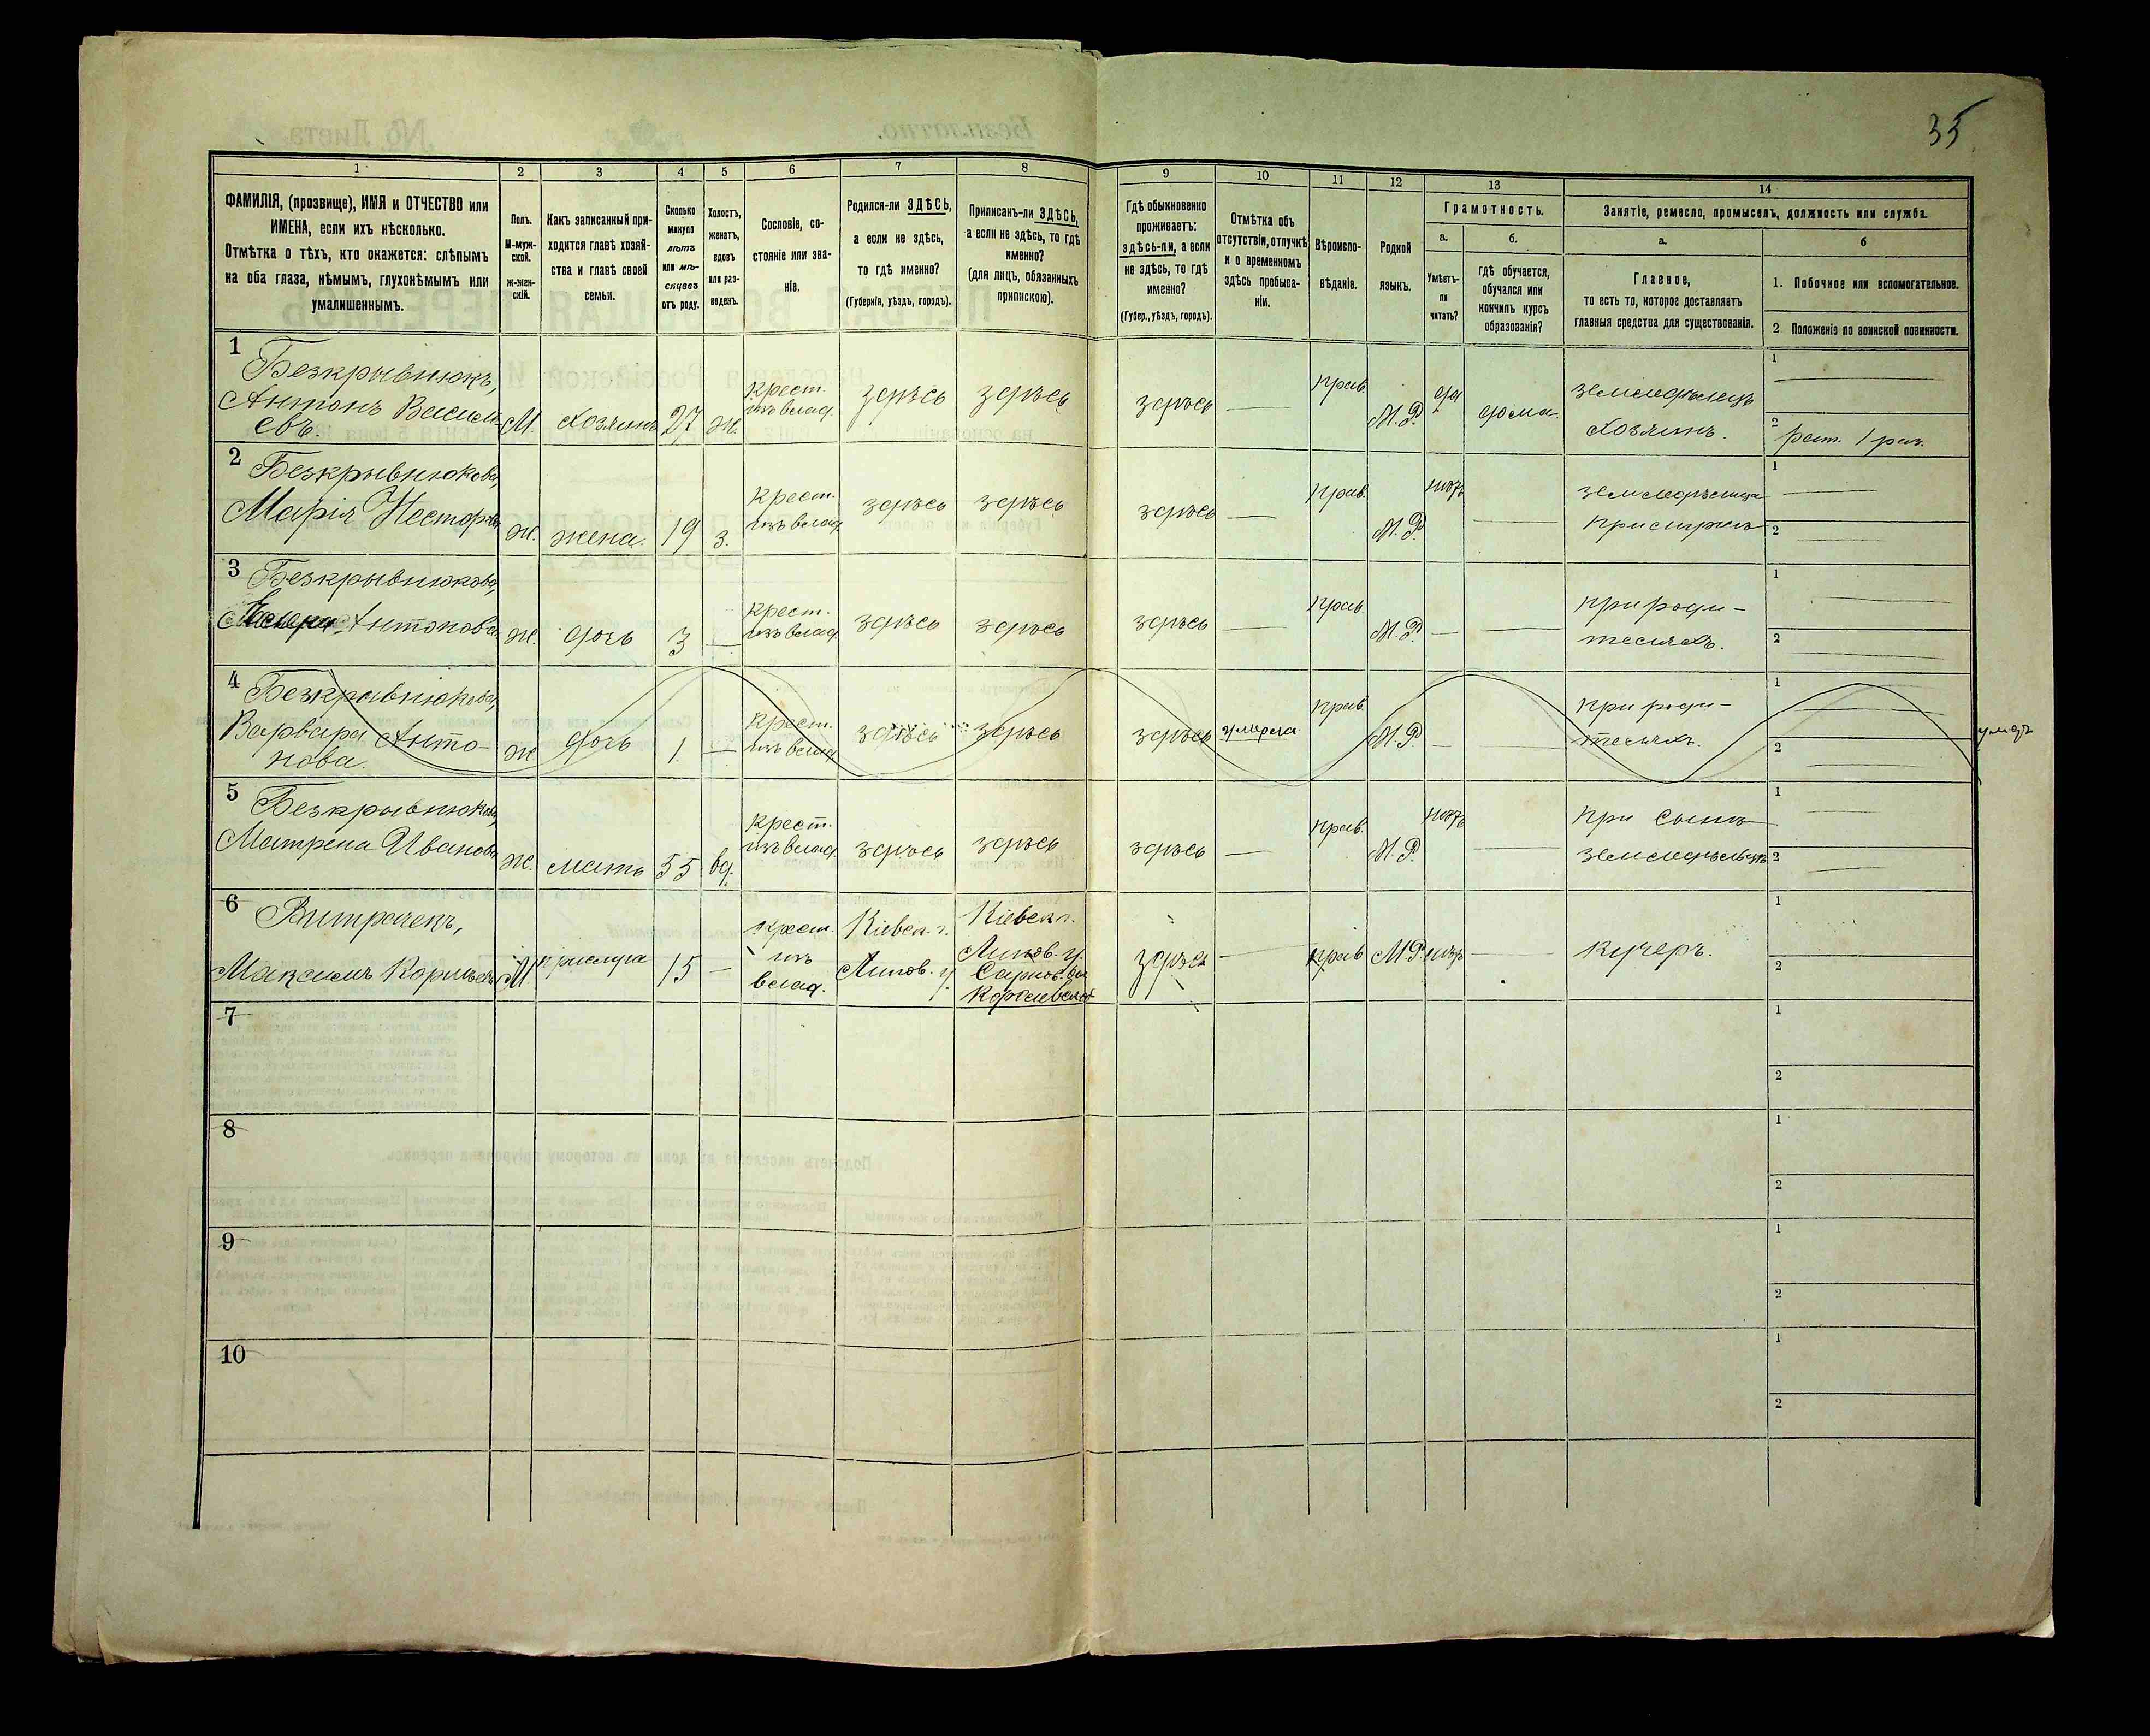 35
1 2 3 4 5 6 7 8 9 10 11 12 13 14
ФАМИЛІЯ, (прозвище), ИМЯ и ОТЧЕСТВО или
ИМЕНА, если ихъ нѣсколько.
Отмѣтка о тѣхъ, кто окажется: слѣпымъ
на оба глаза, нѣмымъ, глухонѣмымъ или
умалишеннымъ.
Полъ.
М-муж-
ской.
ж-жен-
скій.
Какъ записанный при-
ходится главѣ хозяй-
ства и главѣ своей
семьи.
Сколько
минуло
лѣтъ
или мѣ-
сяцевъ
отъ роду.
Холостъ,
женатъ,
вдовъ
или раз-
веденъ.
Сословіе, со-
стояніе или зва-
ніе.
Родился-ли ЗДѢСЬ,
а если не здѣсь,
то гдѣ именно?
(Губернія, уѣздъ, городъ).
Приписанъ-ли ЗДѢСЬ,
а если не здѣсь, то гдѣ
именно?
(для лицъ, обязанныхъ
припискою).
Гдѣ обыкновенно
проживаетъ:
здѣсь-ли, а если
не здѣсь, то гдѣ
именно?
(Губер., уѣздъ, городъ).
Отмѣтка объ
отсутствіи, отлучкѣ
и о временномъ
здѣсь пребыва-
ніи.
Вѣроиспо-
вѣданіе.
Родной
языкъ.
Грамотность.
а.
Умѣетъ-
ли
читать?
б.
гдѣ обучается,
обучался или
кончилъ курсъ
образованія?
Занятіе, ремесло, промыселъ, должность или служба.
а.
Главное,
то есть то, которое доставляетъ
главныя средства для существованія.
б
1. Побочное или вспомогательное.
2 Положеніе по воинской повинности.
1
Безкрывнюкъ,
Антонъ Василь-
евъ.
М. Хозяинъ 27 ж.
крест.
изъ влад.
здѣсь здѣсь здѣсь прав. М.Р. да дома.
земледѣлецъ
Хозяинъ.
1
2 рат. 1 раз.
2
Безкрывнюкова,
Марія Несторова
ж. жена. 19 з.
крест.
изъ влад.
здѣсь здѣсь здѣсь прав. М.Р. нѣтъ
1
2
3
Безкрывнюкова,
Антонова
ж. дочь 3
крест.
изъ влад.
здѣсь здѣсь здѣсь прав. М.Р.
при роди-
теляхъ.
1
2
4
Безкрывнюкова,
Варвара Анто-
нова.
ж. дочь 1
крест.
изъ влад.
здѣсь здѣсь здѣсь умерла прав. М.Р
при роди-
теляхъ.
1
2
5
Безкрывнюкова,
Матрена Иванова
ж. мать 55 вд.
крест.
изъ влад.
здѣсь здѣсь здѣсь прав. М.Р. нѣтъ
при сынѣ
1
2
6
Витрачекъ,
Максимъ
М. прислуга 15
крест.
изъ
влад.
Кіевск. г.
Липов. у.
Кіевск г.
Липов. у.
здѣсь прав М.Р. нѣтъ
кучеръ.
1
2
7
1
2
8
1
2
9
1
2
10
1
2